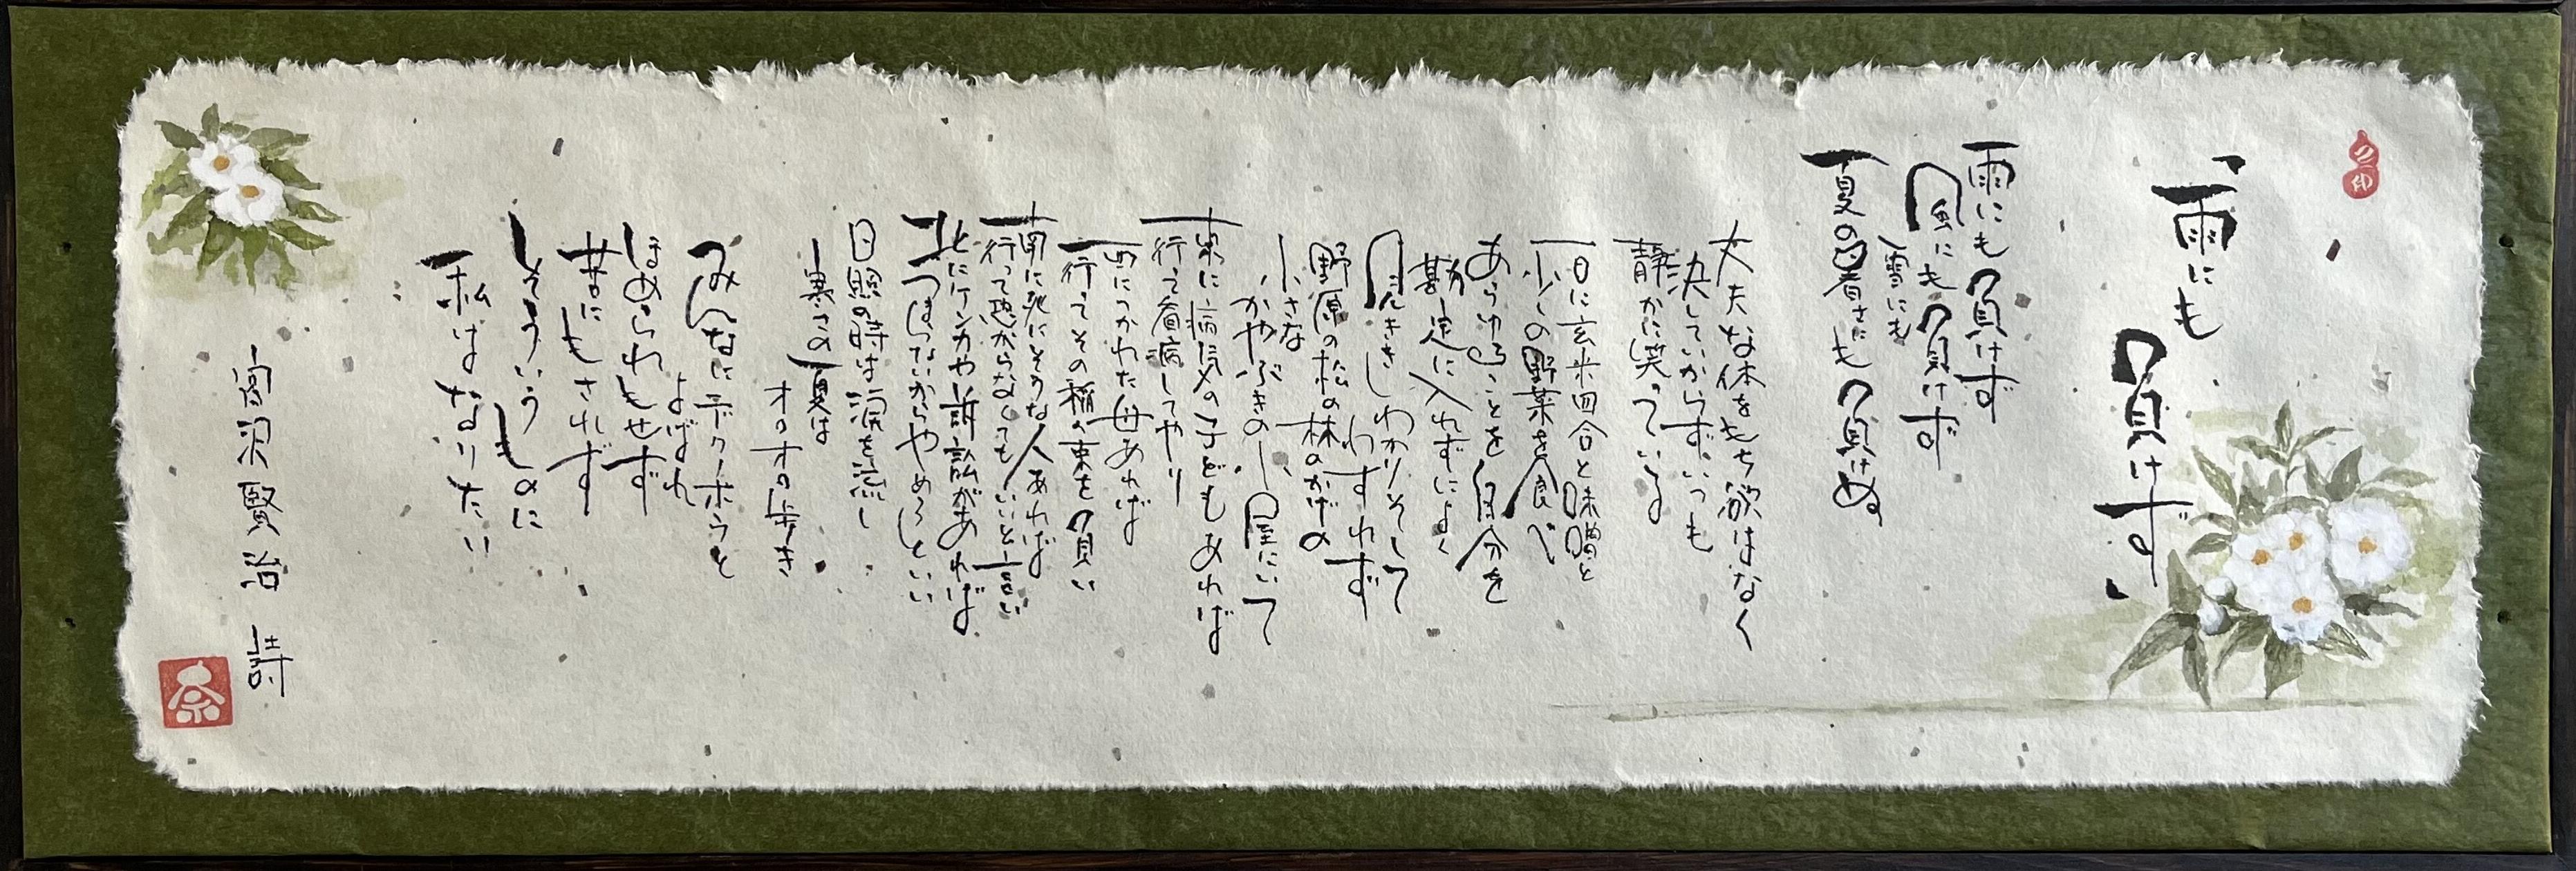 「雨にも
負けず」
雨にも負けず
風にも負けず
雪にも
夏の暑さにも負けぬ
丈夫な体をもち欲はなく
決していからずいつも
静かに笑っている
一日に玄米四合と味噌と
少しの野菜を食べ
あらゆることを自分を
勘定に入れずによく
見ききしわかりそして
わすれず
野原の松の林のかげの
小さな
かやぶきの小屋にいて
東に病気の子どもあれば
行って看病してやり
西につかれた母あれば
行ってその稲の束を負い
南に死にそうな人あれば
行って恐がらなくてもいいと言い
北にケンカや訴訟があれば
つまらないからやめろといい
日照の時は涙を流し
寒さの夏は
オロオロ歩き
みんなにデクノボウと
よばれ
ほめられもせず
苦にもされず
そういうものに
私はなりたい
宮沢賢治 詩
奈